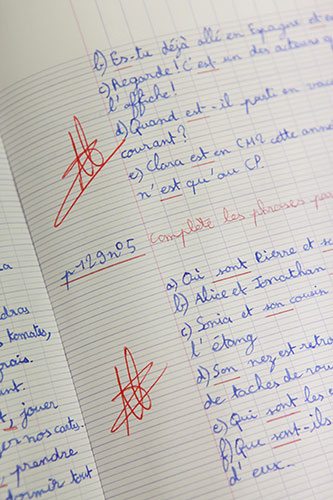 b) Es-tu déjà allé en Espagne et
c) Regarde! C'est un des acteurs
l'affiche!
d) Quand est-il parti en
courant?
e) Clara est en CM2 cette
n'est qu'au CP.
p 129 n°5 Complète les phrases
a) Où sont Pierre et
b) Alice et Jonathan
c) Sonia et son cousin
l'étang
d) Son nez est
de taches de
e) Qui sont les
f) Que sont-ils
d'eux.
tomates,
jouer
nos cartes.
prendre
dormir tout